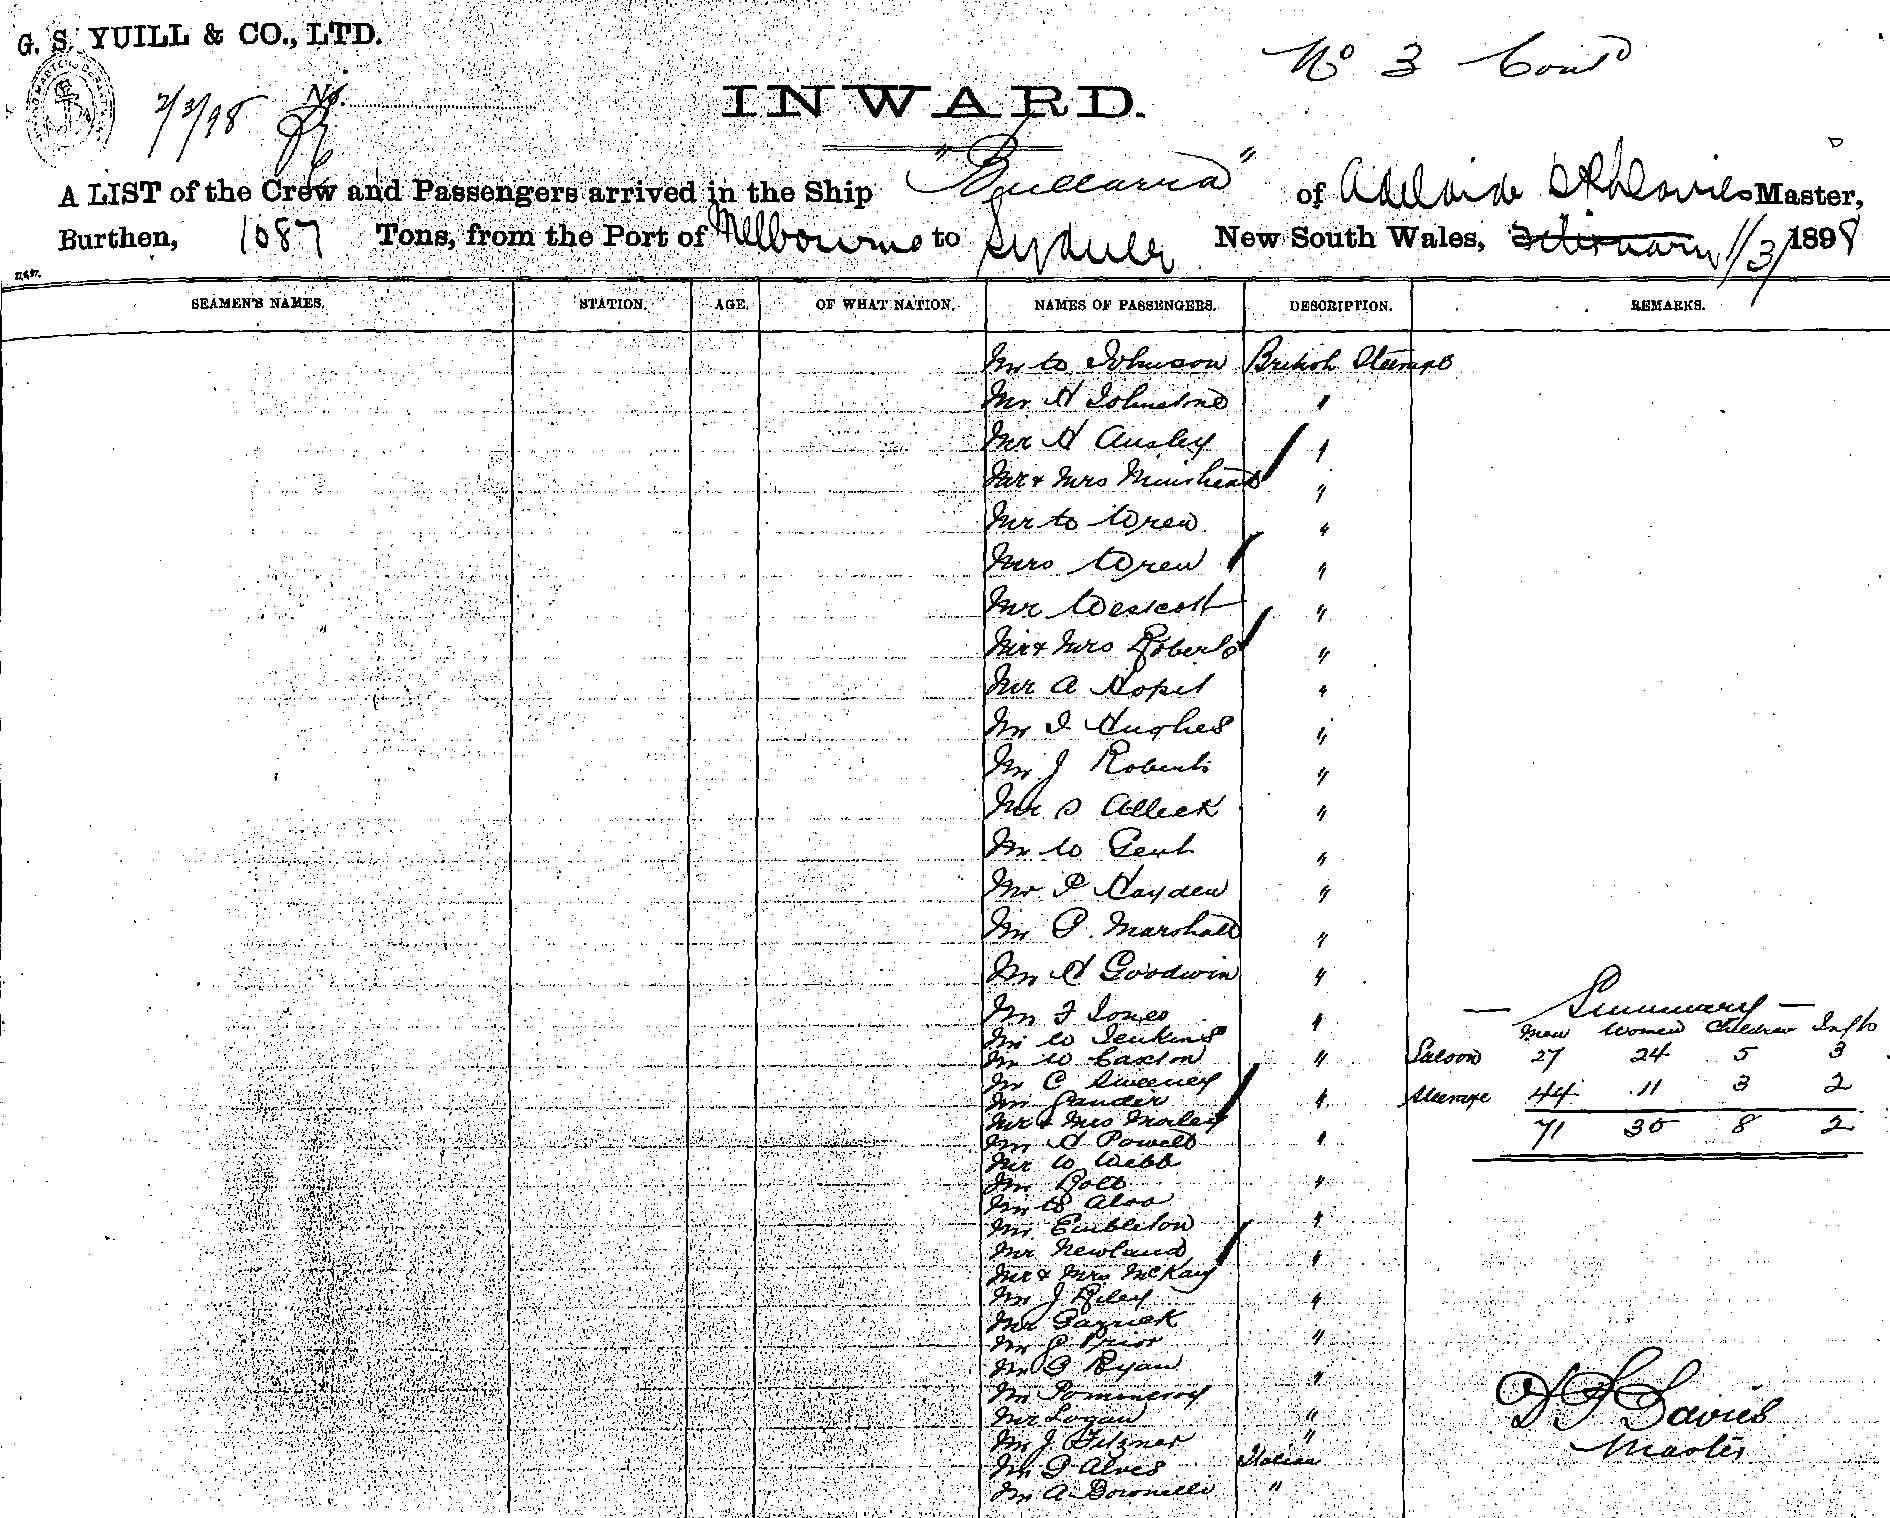 G. S. YUILL & CO., LTD.
No 3 Contd
2/3/98 No.
INWARD.
A LIST of the Crew and Passengers arrived in the Ship "Bullarra" of Adelaide Master,
Burthen, 1087 Tons, from the Port of Melbourne to Sydney New South Wales, February 1/3/1898
SEAMEN'S NAMES. STATION. AGE. OF WHAT NATION. NAMES OF PASSENGERS. DESCRIPTION. REMARKS.
Mr W Johnson British Steerage
Mr H Johnstone "
Mr H Ansley "
Mr & Mrs Muirhead "
Mr W Wren "
Mrs Wren "
Mr Westcott "
Mr & Mrs Roberts "
Mr A "
Mr I Hughes "
Mr J Roberts "
Mr S Alleck "
Mr W Gent "
Mr P Hayden "
Mr P. Marshall "
Mr H Goodwin "
Mr F Jones "
Mr W Jenkins
Mr W Caxton "
Mr C Sweeney
Mr Gander "
Mr & Mrs Morley
Mr H Powell "
Mr W Webb
Mr Bolt "
Mr
Mr Embleton "
Mr Newland "
Mr & Mrs McKay
Mr J Riley "
Mr
Mr G Prior "
Mr P Ryan
Mr Pommeroy "
Mr Logan "
Mr J Filzner "
Mr D Alves Italian
Mr A Boronelli "
— Summary —
Men Women Children Infts
Saloon 27 24 5 3
Steerage 44 11 3 2
71 35 8 2
D S Davies
Master